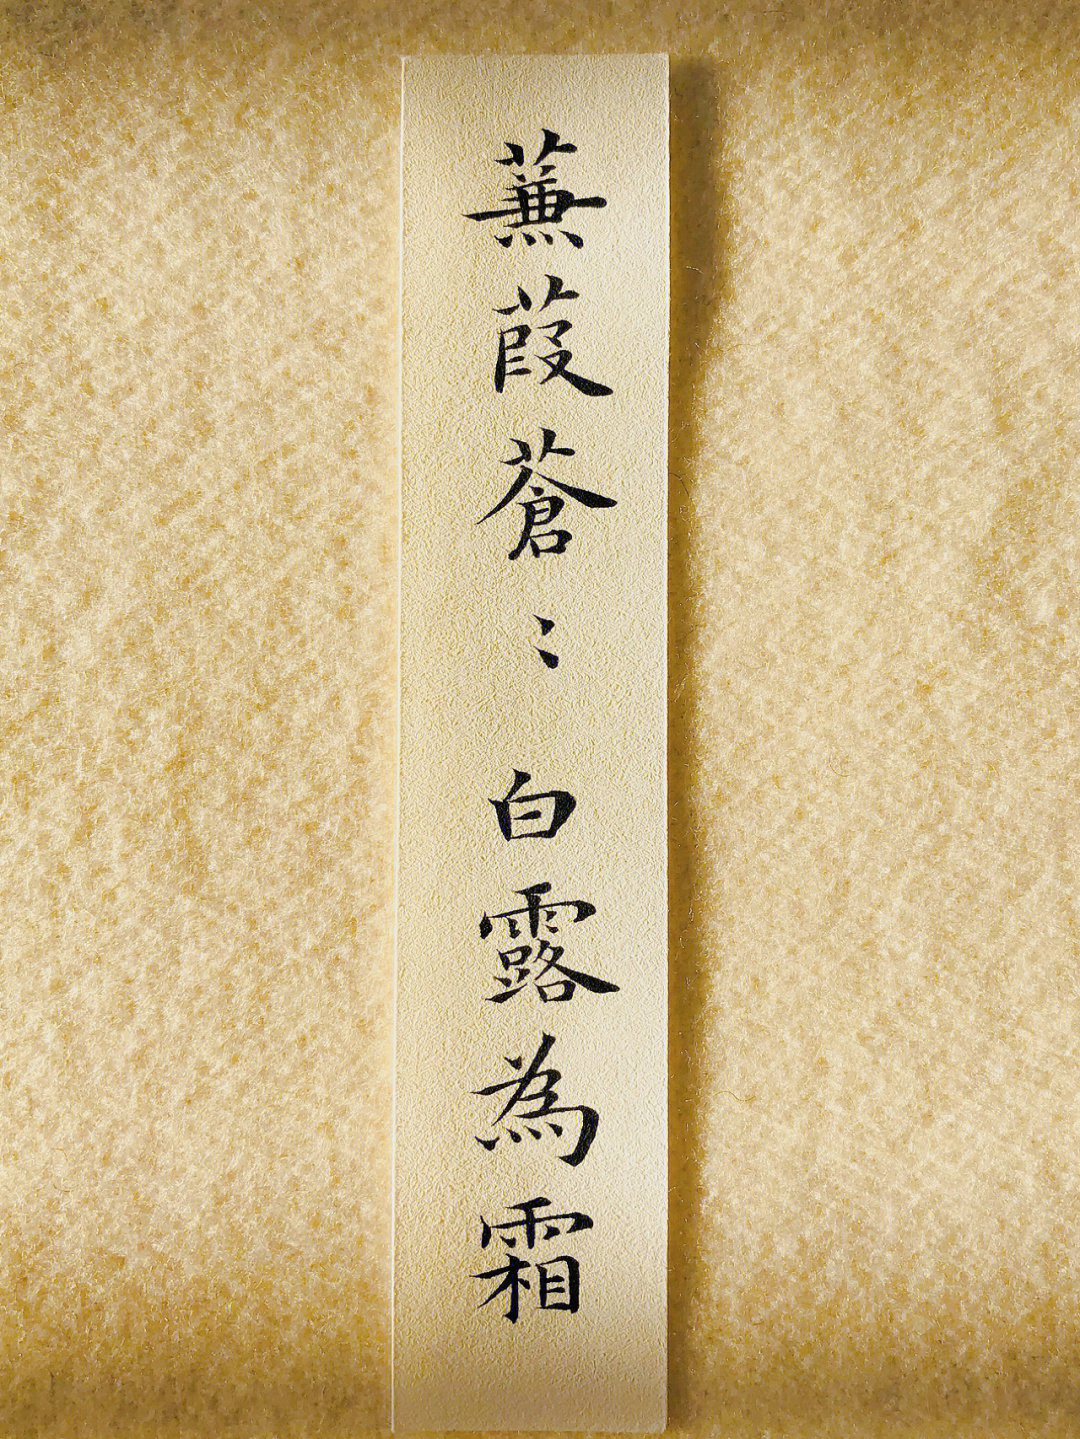 蒹葭蒼〻白露為霜